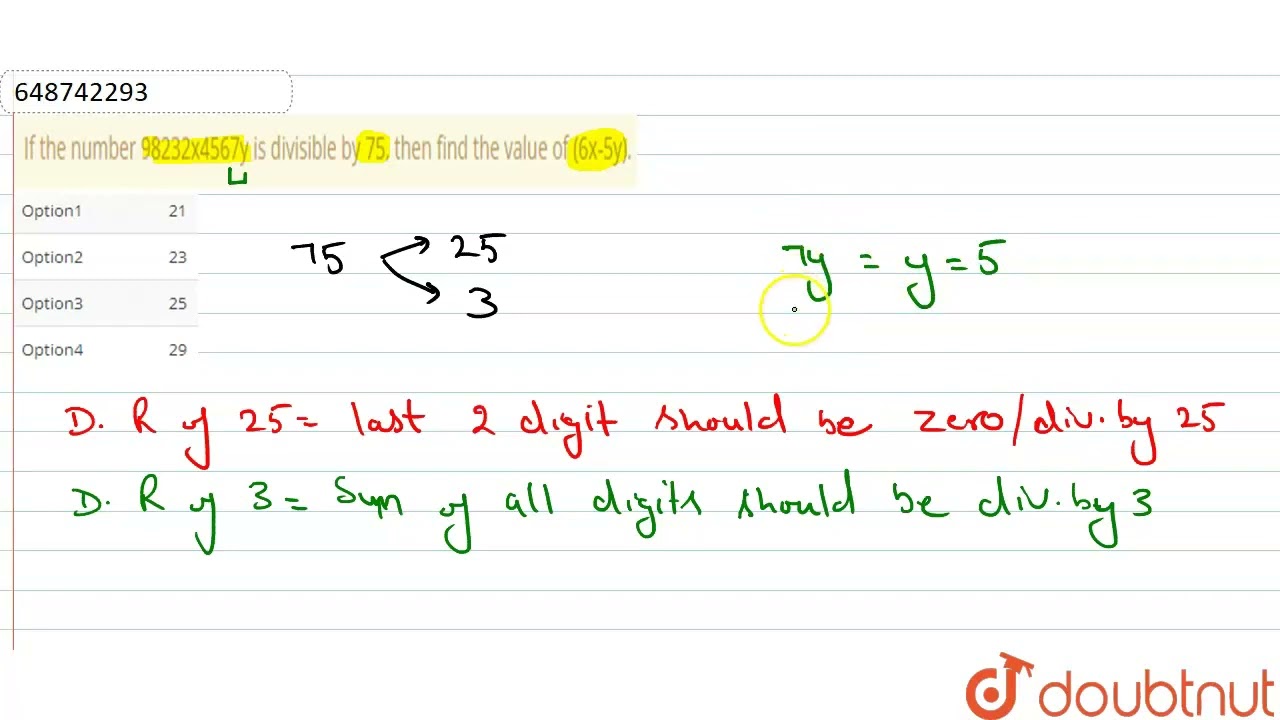 648742293
If the number 98232x4567y is divisible by 75, then find the value of (6x-5y).
Option1 21
Option2 23
Option3 25
Option4 29
75 25
3
7y = y = 5
D. R of 25 = last 2 digit should be zero/div. by 25
D. R of 3 = Sum of all digits should be div. by 3
doubtnut